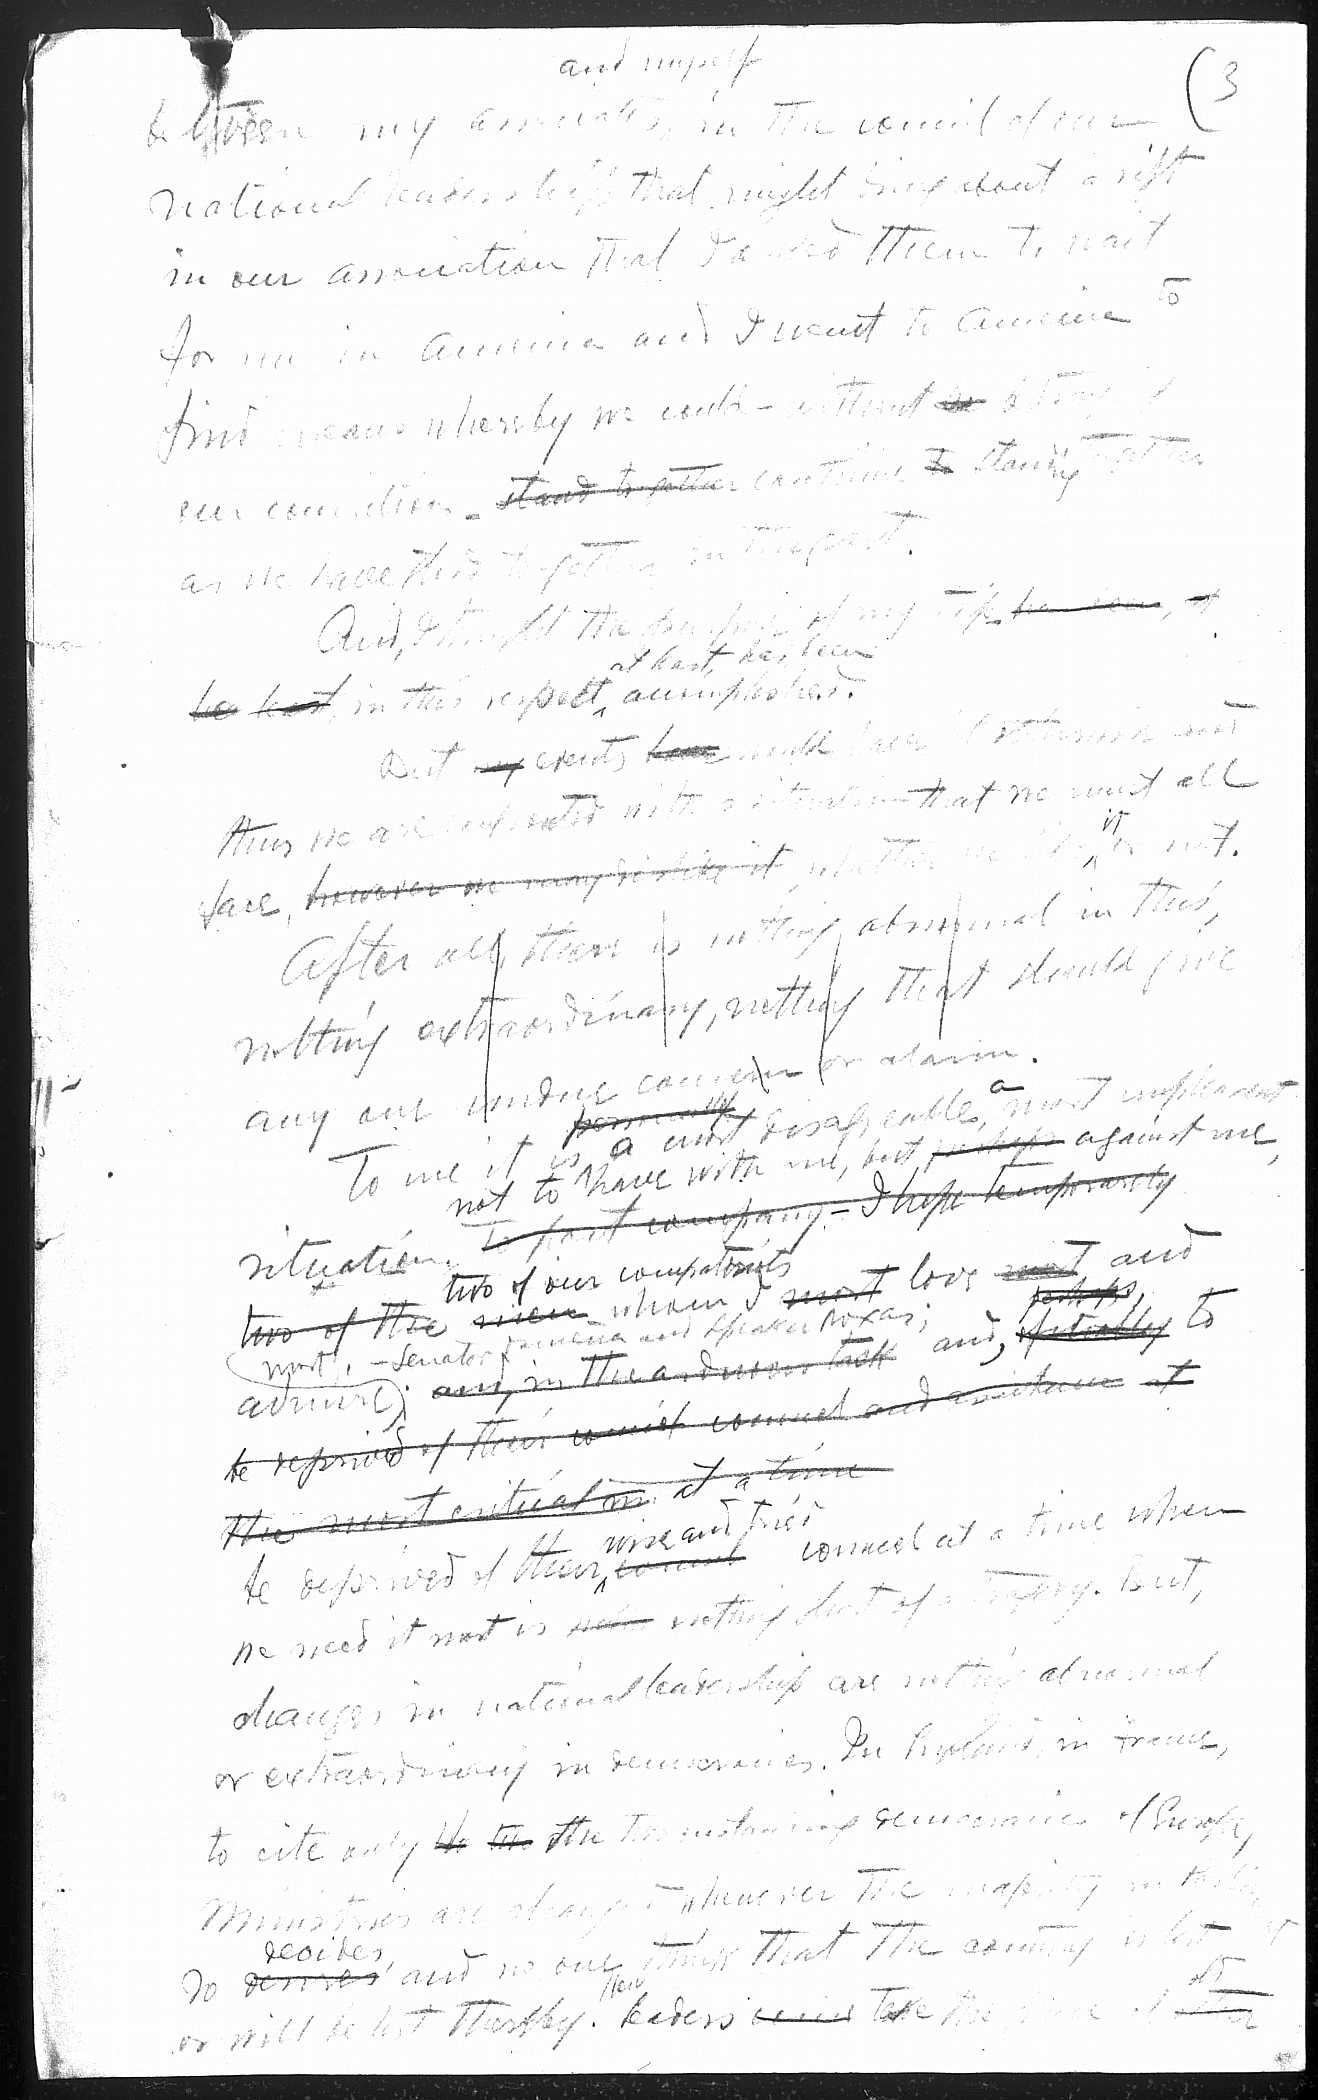 (3
and myself
between my associates, in the council of our
national leadership that might bring about a rift
in our association that I asked them to wait
for me in America and I went to America to
find means whereby we could - without
our convictions - stand together continue to standing together
as we have stood together in the past.
And, I thought the purpose of my trip
at least, has been
in this respect, accomplished.
But my events have would have it otherwise and
thus we are confronted with a situation that we must all
it
face, however we may dislike it whether we like or not.
After all, there is nothing abnormal in this,
nothing extraordinary, nothing that should give
any one undue concern or alarm.
personally a
To me it is a most disagreeable, most unpleasant
not to have with me, but perhaps against me,
situation. To part company - I hope temporarily
two of our compatriots
two of the men whom I most love most and
most, - Senator Osmeña and Speaker Roxas; perhaps,
admire; and, in the arduous task and, to
be deprived of their counsel and assistance at
the most critical at a time
wise and tried
be deprived of their counsel at a time when
we need it most is nothing short of a tragedy. But,
changes in national leadership are nothing abnormal
or extraordinary in democracies. In England, in France,
to cite only the two outstanding democracies of Europe,
Ministries are changed whenever the majority in Parliament
decides
so desires and no one thinks that the country is lost
New old
or will be lost thereby. leaders take the place of